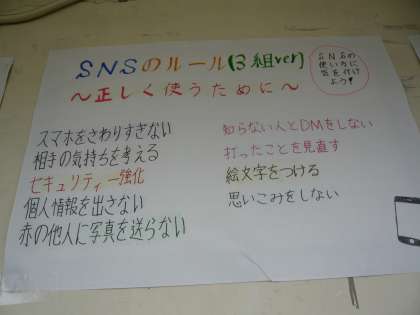 SNSのルール(3組ver)
～正しく使うために～
SNSの
使い方に
気を付け
よう!
スマホをさわりすぎない
相手の気持ちを考える
セキュリティー強化
個人情報を出さない
赤の他人に写真を送らない
知らない人とDMをしない
打ったことを見直す
絵文字をつける
思いこみをしない